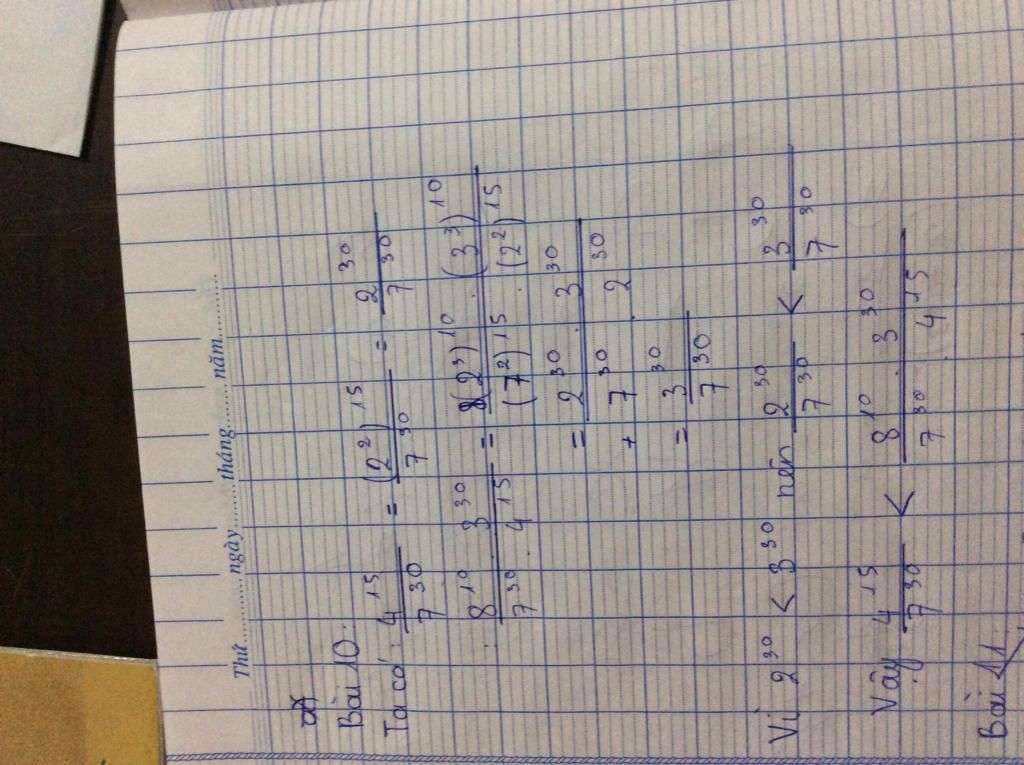 Thứ............ngày............tháng............năm............
Bài 10.
Ta có: 4^15/7^30 = (2^2)^15/7^30 = 2^30/7^30
: (8^10 . 3^30)/(7^30 . 4^15) = ((2^3)^10 . (3^3)^10)/((7^2)^15 . (2^2)^15)
= (2^30 . 3^30)/(7^30 . 2^30)
+
= 3^30/7^30
Vì 2^30 < 3^30 nên 2^30/7^30 < 3^30/7^30
Vậy 4^15/7^30 < (8^10 . 3^30)/(7^30 . 4^15)
Bài 11